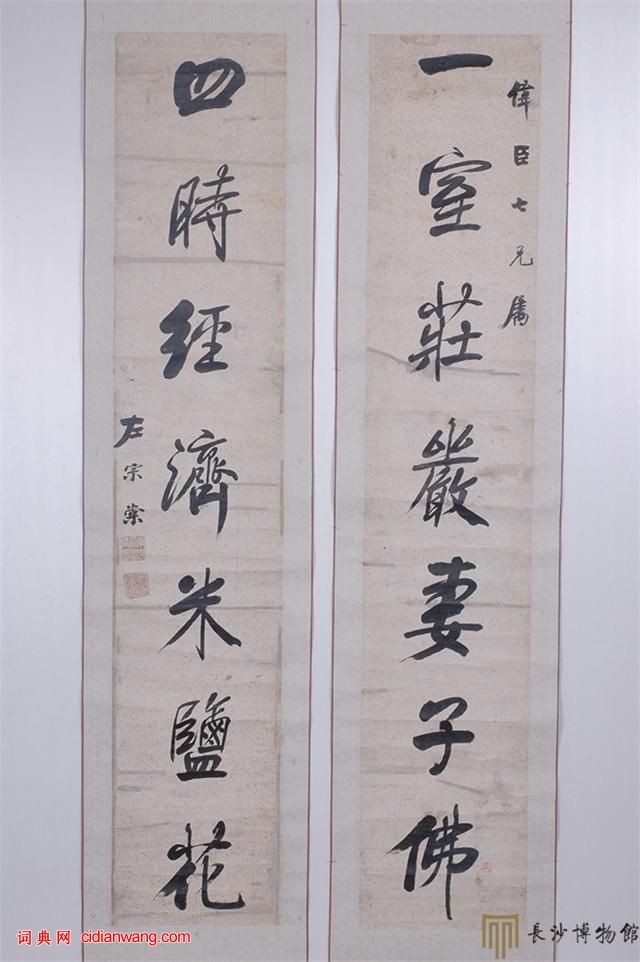 偉臣七兄屬
一室莊嚴妻子佛
四時經濟米鹽花
左宗棠
词典网 cidianwang.com
長沙博物館